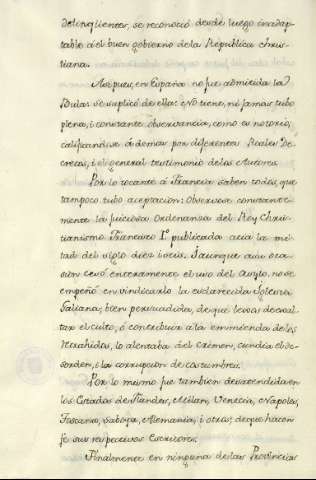 delinqüentes, se reconoció desde luego inadap-
table ál buen gobierno dela República Chris-
tiana.
Asi pues, en España no fue admitida la
Bula: se suplicó de ella: i no tiene, ni jamas tubo
plena, i constante observancia, como es notorio,
calificandose á demas por diferentes Reales De-
cretos, i el general testimonio delos Autores.
Por lo tocante á Francia saben todos, que
tampoco tubo aceptacion: Observose constante-
mente la juiciosa Ordenanza del Rey Christ-
tianismo Francisco I.º publicada acia la mi-
tad del siglo diez i seis. I aunque aun oca-
sion cesó enteramente el uso del Asylo, no se
empeñó en vindicarlo la esclarecida Iglesia
Galicana; bien persuadida, de que lexos de exal-
tar el culto, ó contribuir á la emmienda de los
retrahidos, lo alentaba del crimen, cundia el de-
sorden, i la corrupcion de costumbres.
Por lo mismo fue tambien desatendida en
los Estados de Flandes, Milan, Venecia, Napoles,
Toscana, Saboya, Alemania, i otros; de que hacen
fe sus respectivos Escritores.
Finalmente en ninguna destas Provincias